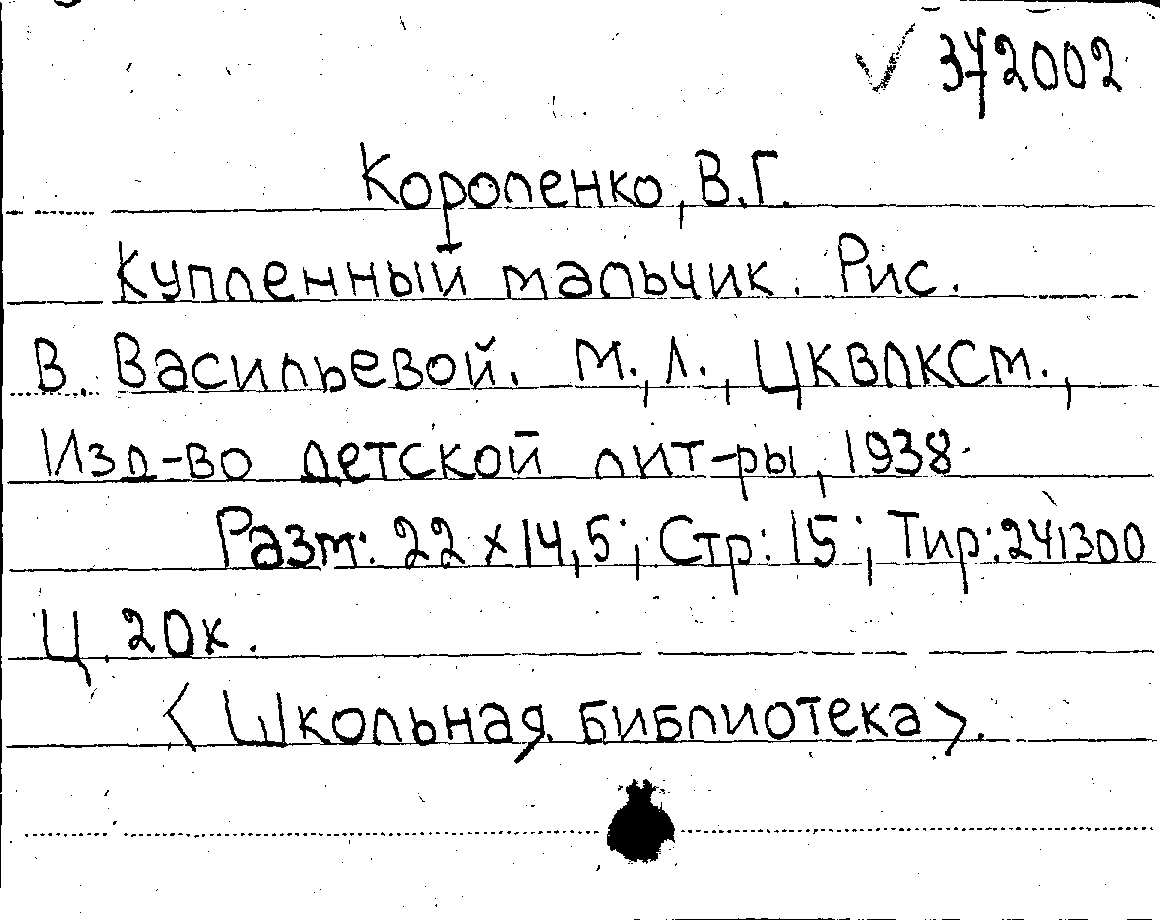 ✓ 372002
Короленко, В.Г.
Купленный мальчик. Рис.
В. Васильевой. М., Л., ЦКВЛКСМ.,
Изд-во детской лит-ры, 1938.
Разм: 22 x 14,5; Стр: 15; Тир: 241300
Ц. 20к.
<Школьная библиотека>.